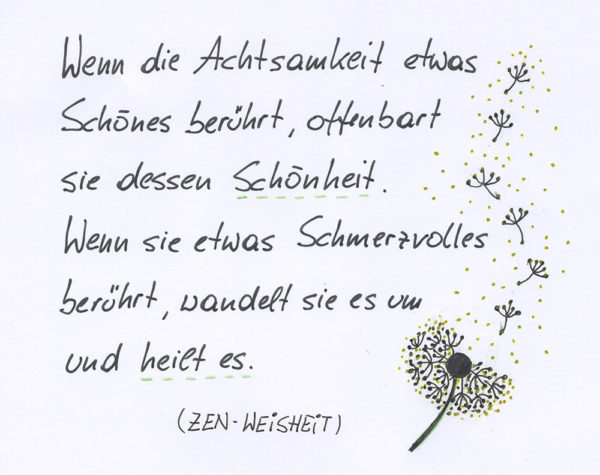 Wenn die Achtsamkeit etwas
Schönes berührt, offenbart
sie dessen Schönheit.
Wenn sie etwas Schmerzvolles
berührt, wandelt sie es um
und heilt es.
(ZEN-WEISHEIT)